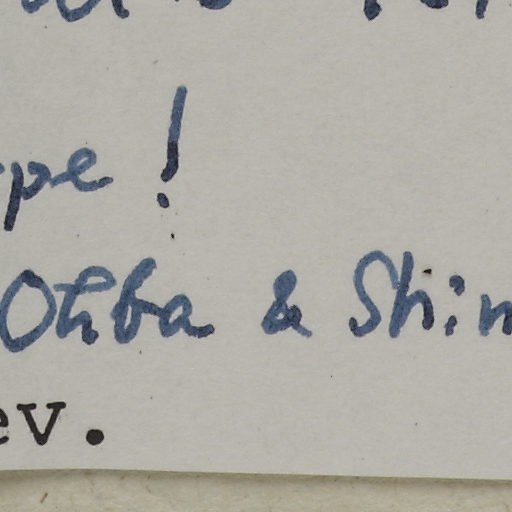 pe!
Ohba & Shim
ev.